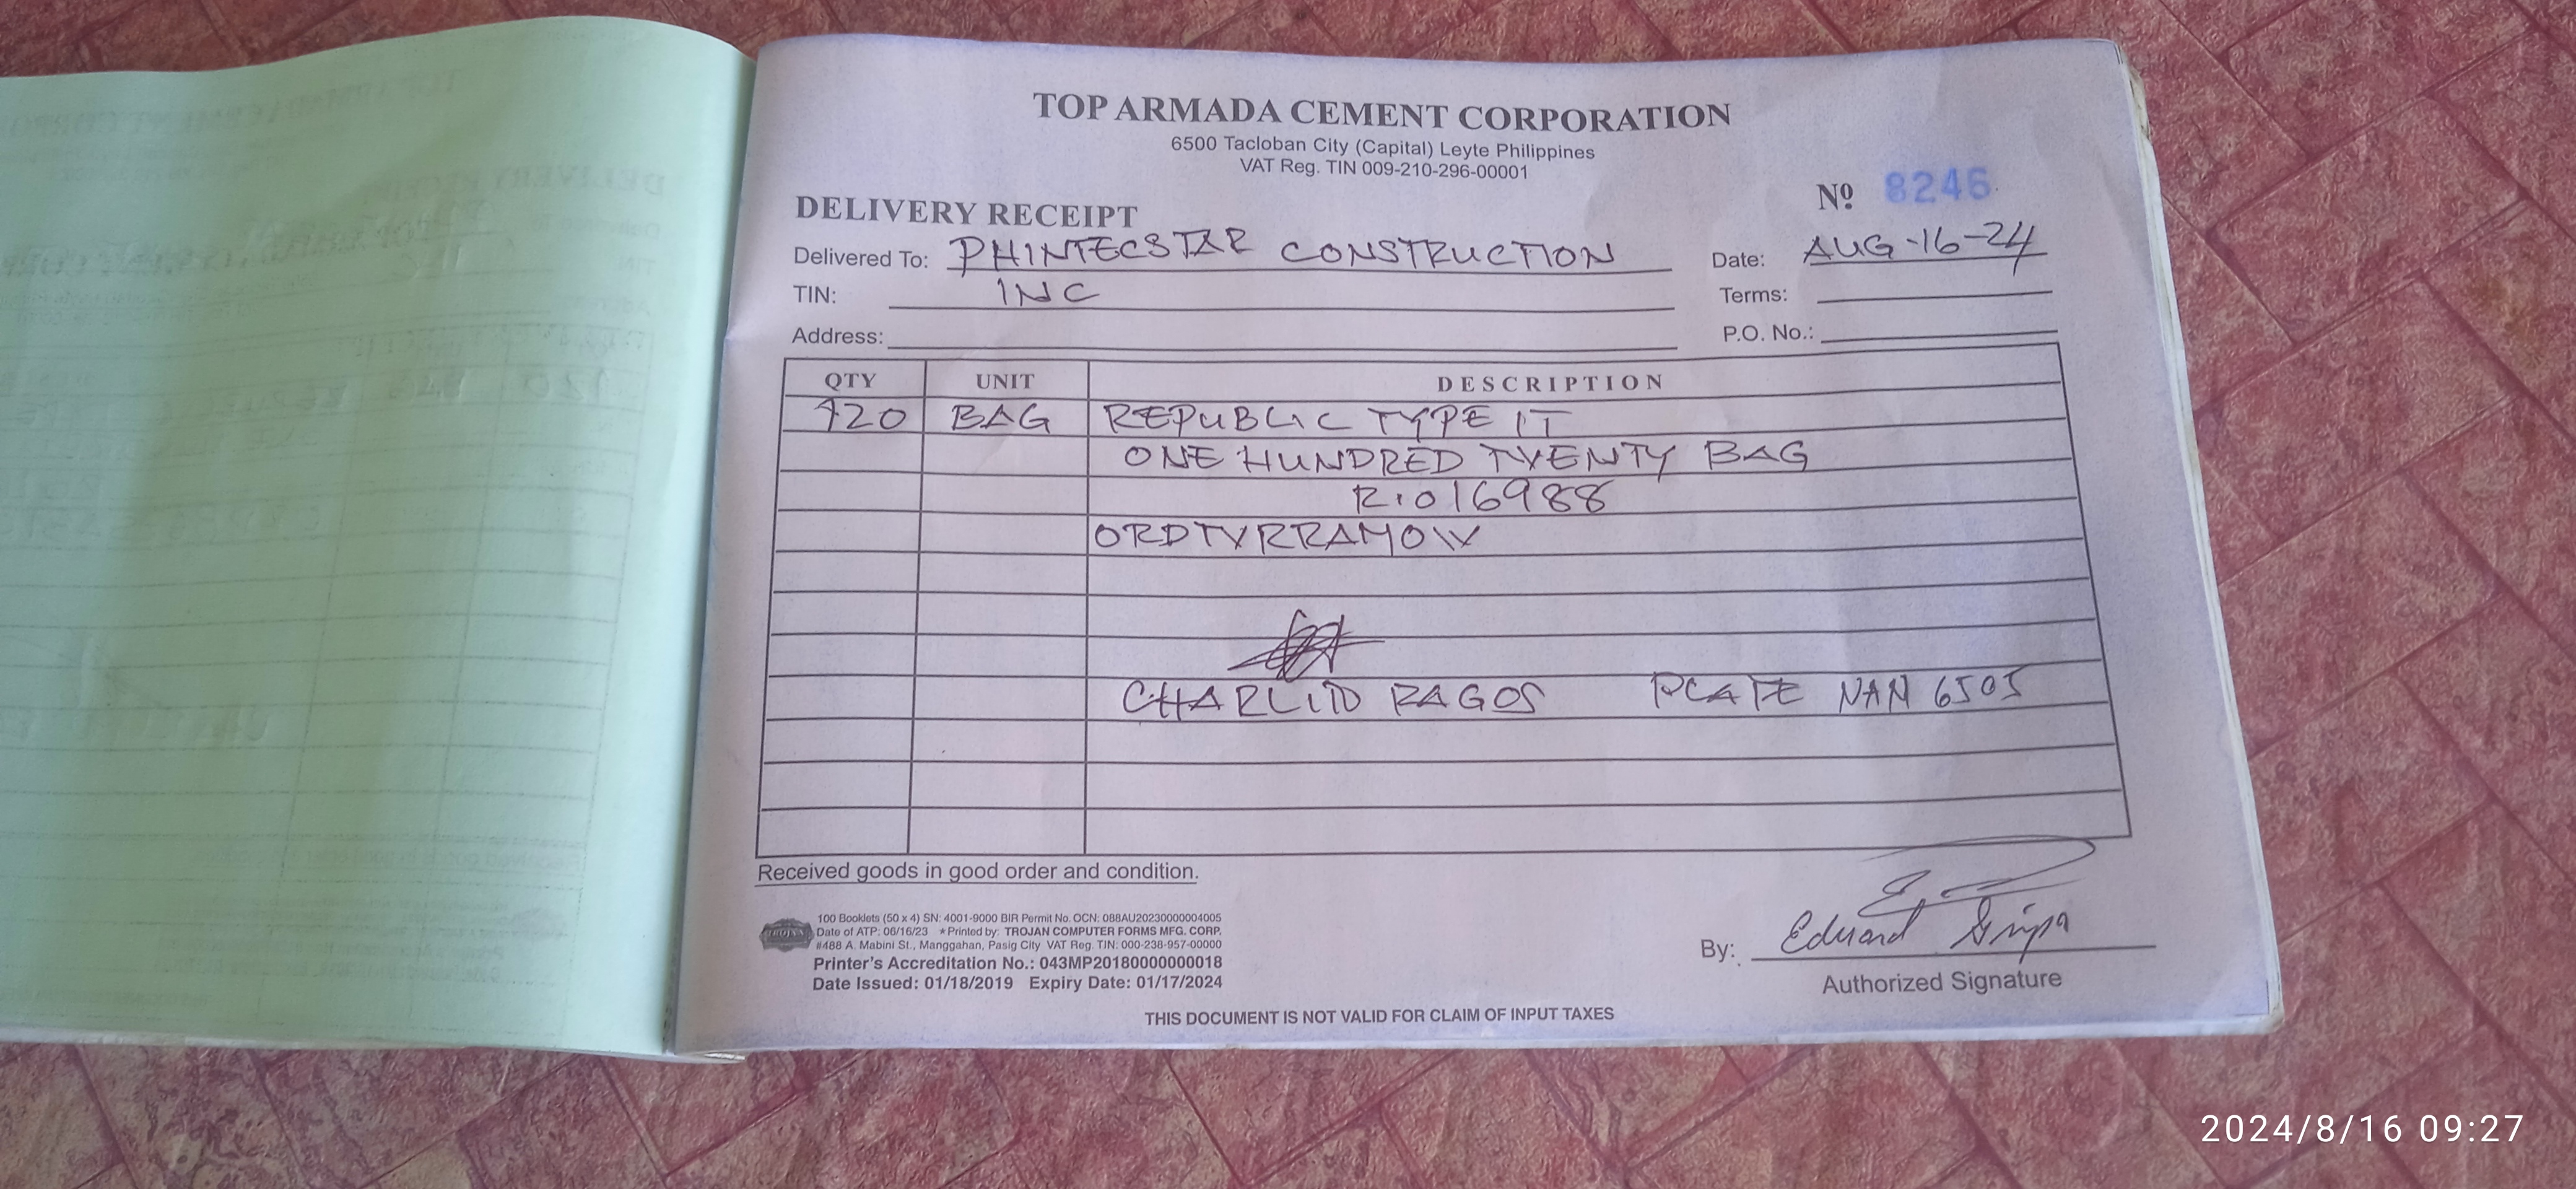 TOP ARMADA CEMENT CORPORATION
6500 Tacloban City (Capital) Leyte Philippines
VAT Reg. TIN 009-210-296-00001
Nº 8246
DELIVERY RECEIPT
Delivered To: PHINTECSTAR CONSTRUCTION Date: AUG-16-24
TIN: INC Terms:
Address: P.O. No.:
QTY UNIT DESCRIPTION
120 BAG REPUBLIC TYPE IT
ONE HUNDRED TWENTY BAG
R.016988
CHARLITO RAGOS PLATE NAN 6505
Received goods in good order and condition.
100 Booklets (50 x 4) SN: 4001-9000 BIR Permit No. OCN: 088AU20230000004005
Date of ATP: 06/16/23 *Printed by: TROJAN COMPUTER FORMS MFG. CORP.
#488 A. Mabini St., Manggahan, Pasig City VAT Reg. TIN: 000-238-957-00000
Printer's Accreditation No.: 043MP20180000000018
Date Issued: 01/18/2019 Expiry Date: 01/17/2024
By: Eduard
Authorized Signature
THIS DOCUMENT IS NOT VALID FOR CLAIM OF INPUT TAXES
2024/8/16 09:27